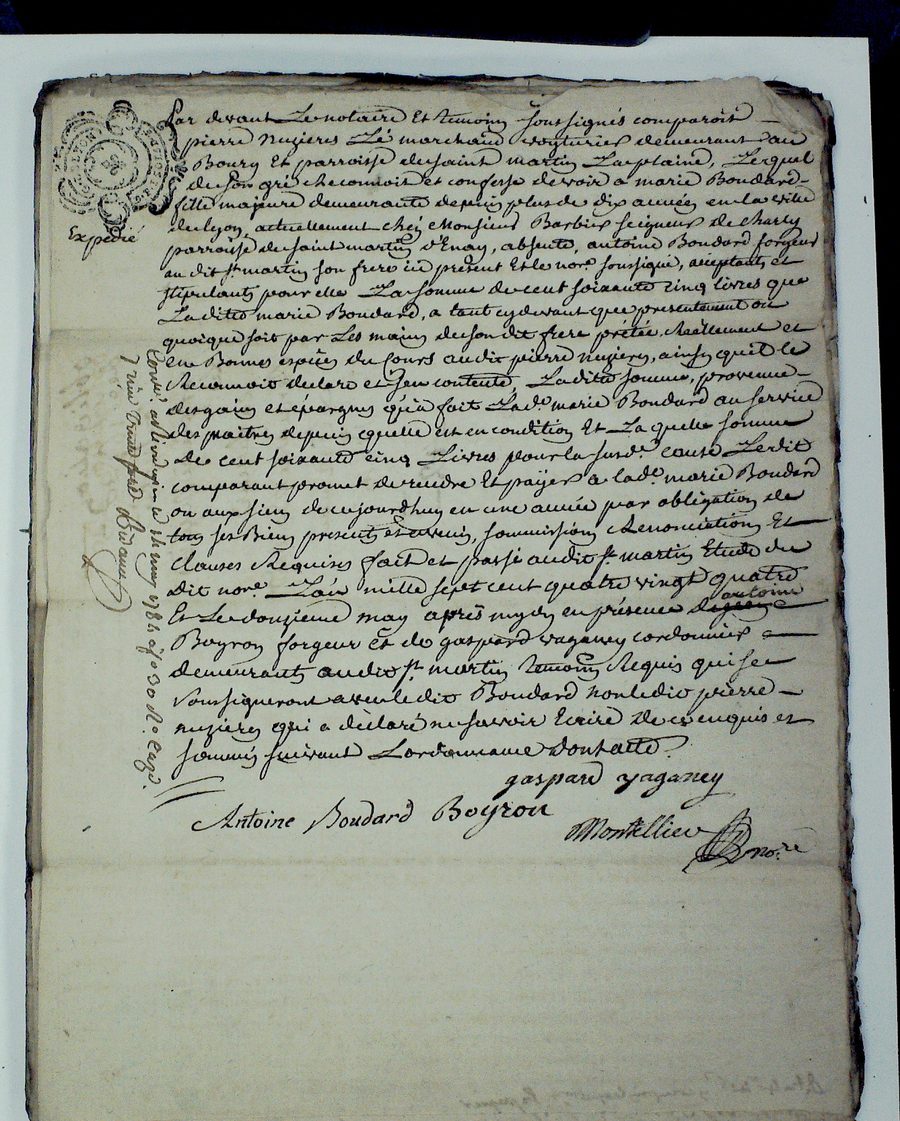 Par devant Le notaire Et temoins soussignés comparoit
pierre nujieres Lé marchand voiturier demeurant au
Bourg Et parroisse de saint martin La plaine, Lequel
de son gré Reconnoit et confesse devoir a marie Boudard
fille majeure demeurante depuis plus de dix années en la ville
de lyon, actuellement chez Monsieur Barbier seigneur de Charly
parroisse de saint martin d'Enay, absente, antoine Boudard forgeur
au dit st. martin son frere ici present Et le nore. soussigné, acceptants et
stipulants pour elle La somme de cent soixante cinq livres que
Ladite marie Boudard, a tant cydevant que presentement ou
quoique soit par Les mains de son dit frere prétée Réellement et
en Bonnes especes du Cours audit pierre nujieres, ainsy qu'il le
Reconnoit declare et s'en contente, Ladite somme, provenue
des gains et épargnes qu'a fait Lade. marie Boudard au service
des maitres depuis qu'elle est en condition Et La quelle somme
de cent soixante cinq Livres pour la susde. cause Ledit
comparant promet de rendre Et payer a lade. marie Boudard
ou aux siens de cejourdhuy en une année par obligation de
tous ses Biens presents et avenir, sommissions Renonciations Et
clauses Requises fait et passé audit st. martin Etude du
dit nore. L'an mille sept cent quatre vingt quatre
Et Le douzieme may après mydy en présence de antoine
Boyron forgeur et de gaspard vaganey cordonnier
demeurants audit st. martin temoins Requis qui se
soussigneront avec ledit Boudard non ledit pierre
nujieres qui a déclaré ne savoir Ecrire de ce enquis et
sommés suivant L'ordonnance Dontacte.
gaspard vaganey
Antoine Boudard Boyron
Montellier nore
Expedié
Contr. a Rivedegier le 14 may 1784